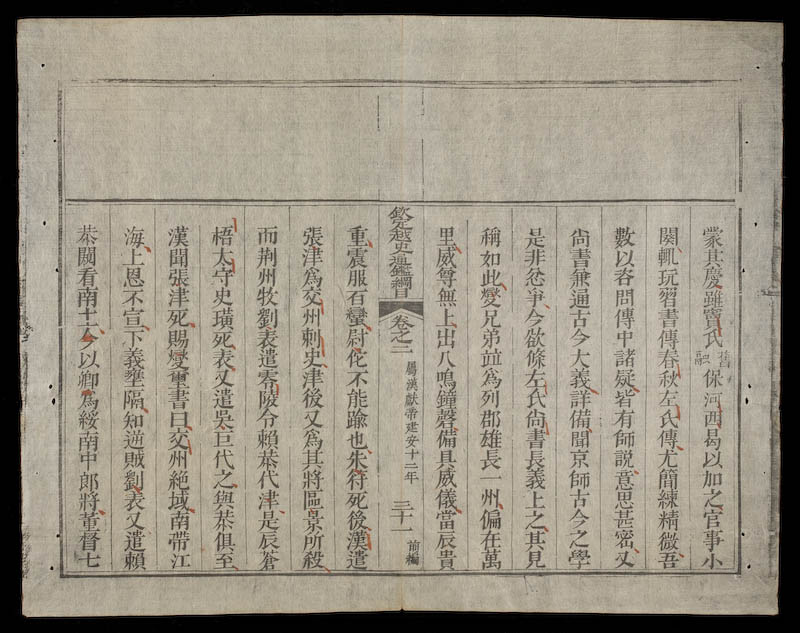 蒙其慶雖竇氏舊融保河西曷以加之官事小
闋輒玩習書傳春秋左氏傳尤簡練精微吾
數以咨問傳中諸疑皆有師說意思甚密又
尚書兼通古今大義詳備聞京師古今之學
是非忿爭今欲條左氏尚書長義上之其見
稱如此燮兄弟竝爲列郡雄長一州偏在萬
里威尊無上出入鳴鐘磬備具威儀當辰貴
欽定越史通鑑綱目 卷之二 屬漢獻帝建安十二年 三十一 前編
重震服百蠻尉佗不能踰也朱符死後漢遣
張津爲交州刺史津後又爲其將區景所殺
而荆州牧劉表遣零陵令賴恭代津是辰蒼
梧太守史璜死表又遣吳巨代之與恭俱至
漢聞張津死賜燮璽書曰交州絕域南帶江
海上恩不宣下義壅隔知逆賊劉表又遣賴
恭闚看南土今以卿爲綏南中郎將董督七